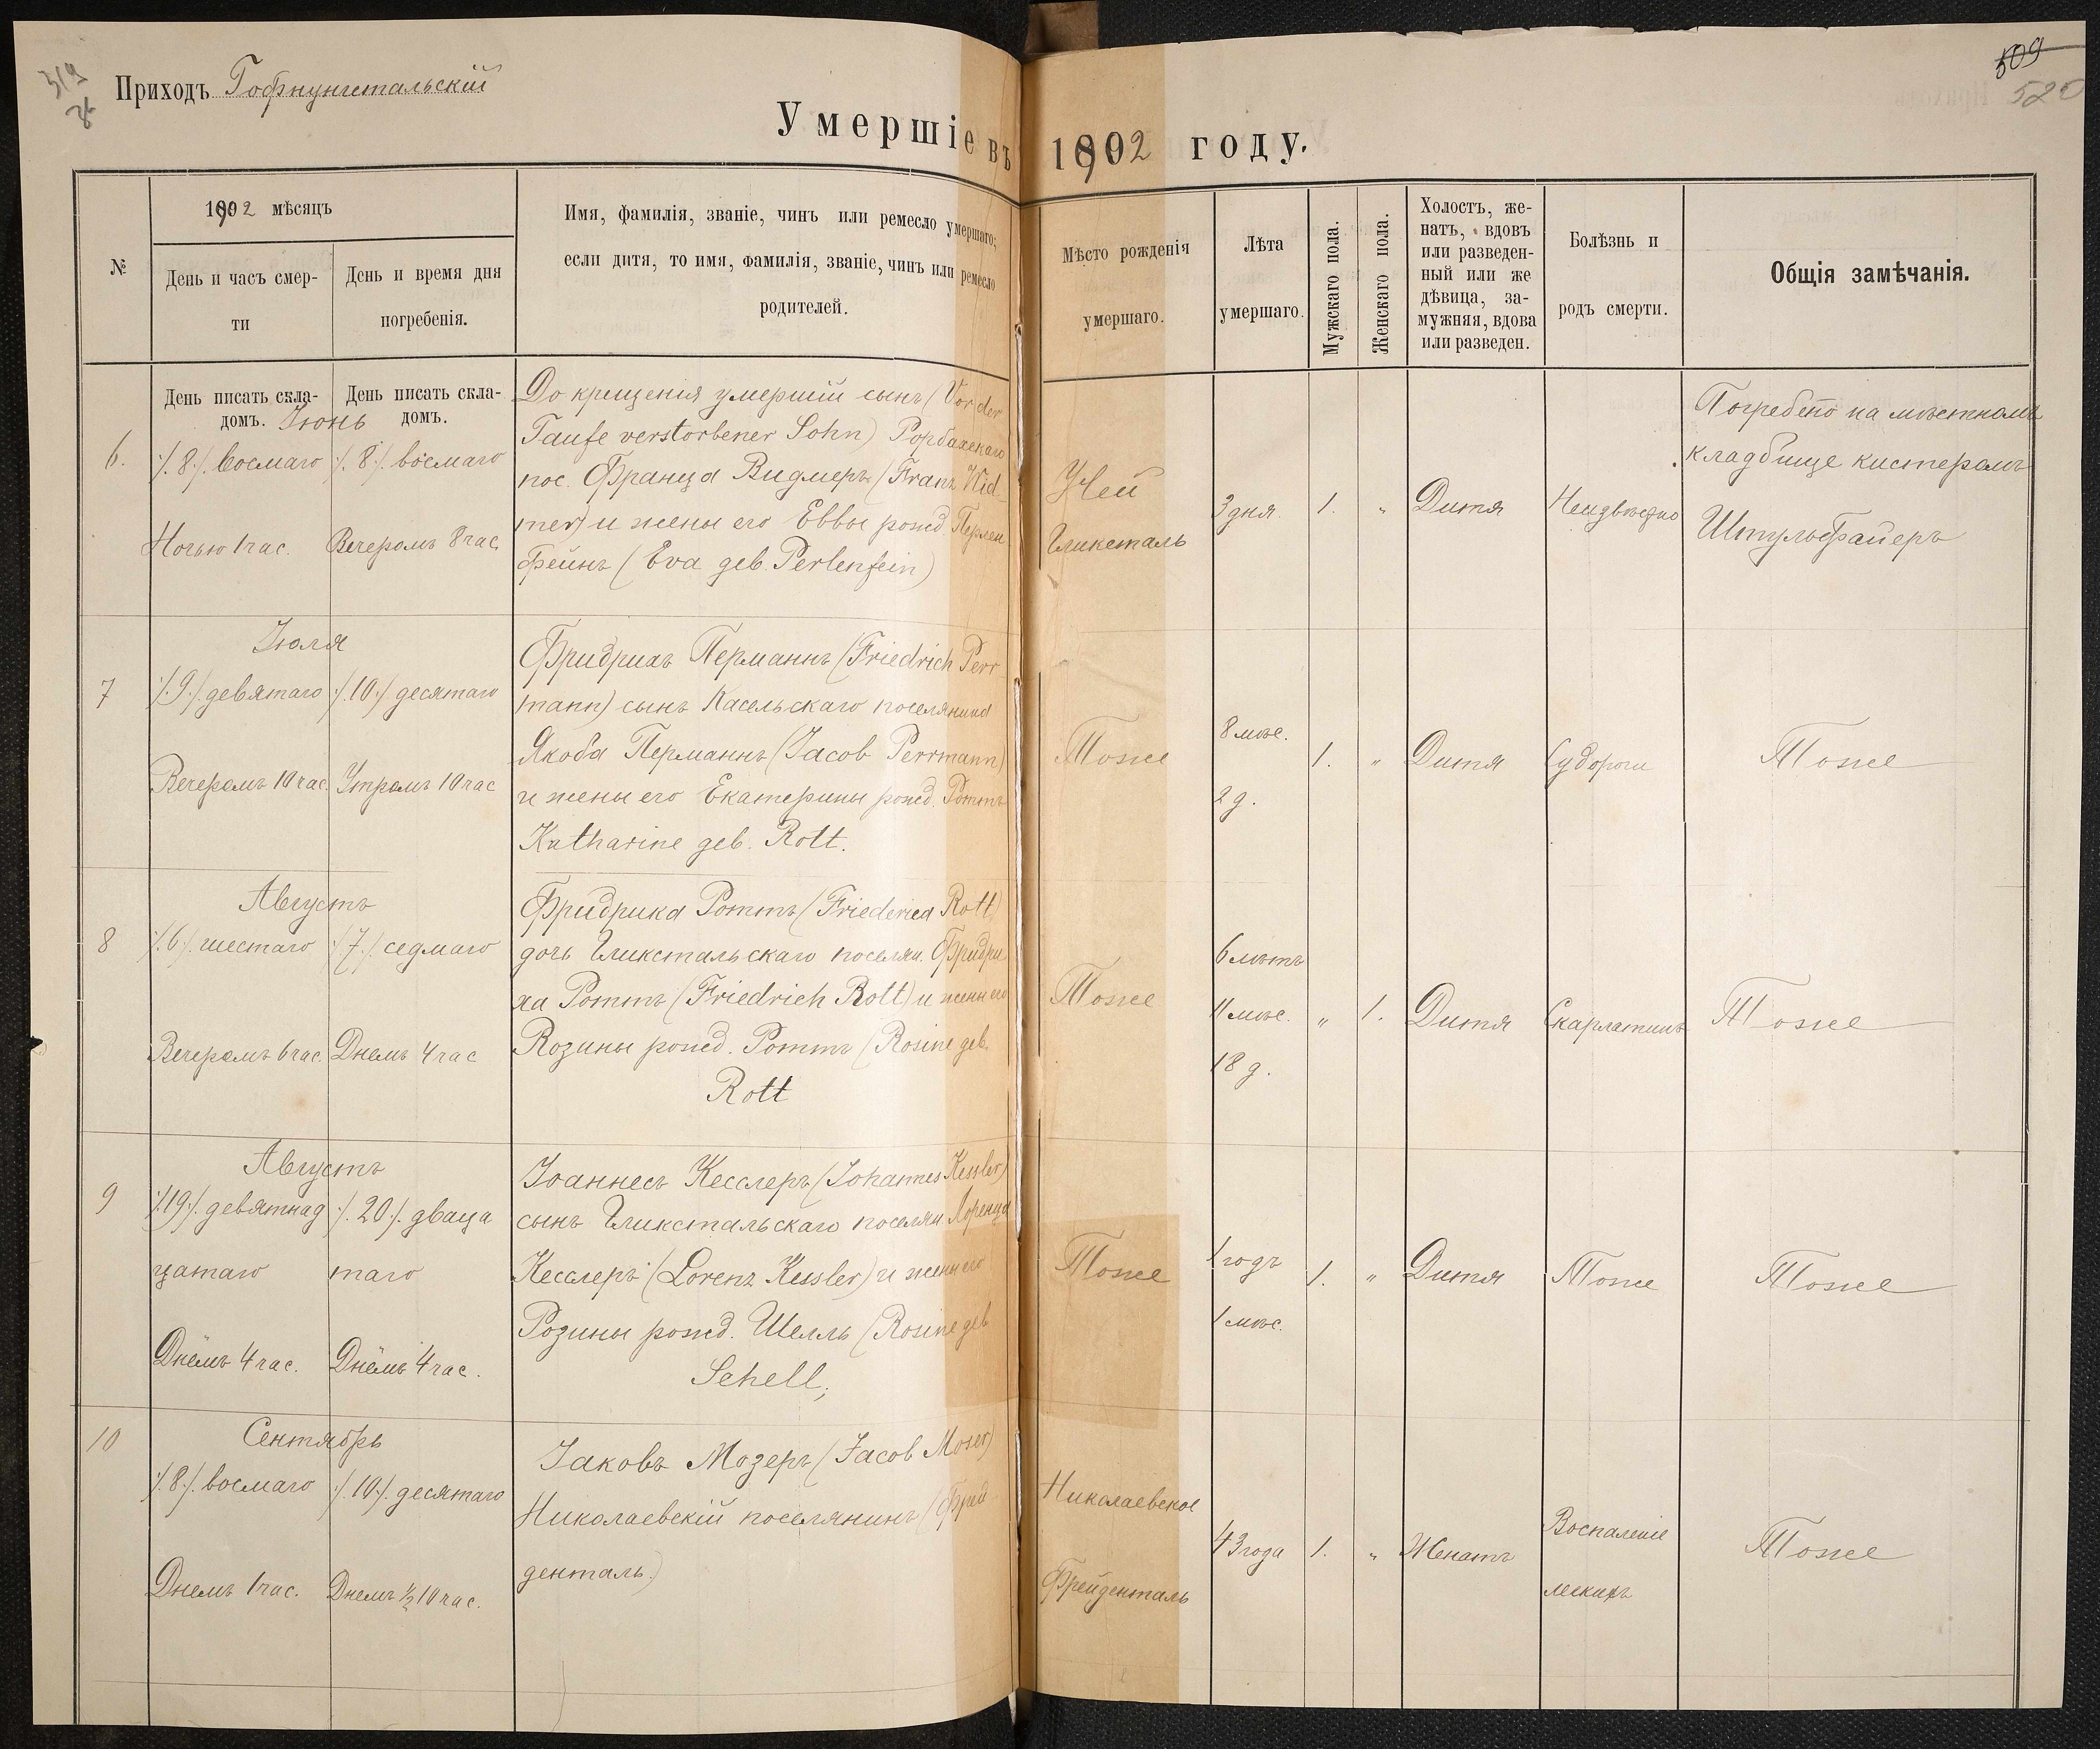 319
Приходъ Гофнунгстальскій
509
520
Умершіе въ 1902 году.
№
1902 мѣсяцъ
День и часъ смер-
ти
День и время дня
погребенія.
Имя, фамилія, званіе, чинъ или ремесло умершаго;
если дитя, то имя, фамилія, званіе, чинъ или ремесло
родителей.
Мѣсто рожденія
умершаго.
Лѣта
умершаго.
Мужскаго пола.
Женскаго пола.
Холостъ, же-
натъ, вдовъ
или разведен-
ный или же
дѣвица, за-
мужняя, вдова
или разведен.
Болѣзнь и
родъ смерти.
Общія замѣчанія.
День писать скла-
домъ.
День писать скла-
домъ.
Іюнь
6.
/.8./. восмаго
Ночью 1 час.
/.8./. восмаго
Вечеромъ 8 час.
До крещенія умершій сынъ (Vor der
Taufe verstorbener Sohn) Рорбахскаго
пос. Франца Видмеръ (Franz Wid-
mer) и жены его Еввы рожд. Перлен
фейнъ (Eva geb. Perlenfein)
Гликсталь
3 дня
1.
"
Дитя
Погребено на мѣстномъ
кладбище кистеромъ
7
Іюля
/.9./. девятаго
Вечеромъ 10 час.
/.10./. десятаго
Утромъ 10 час
Фридрихъ Перманнъ (Friedrich Perr
mann) сынъ Касельскаго поселянина
Якоба Перманнъ (Jacob Perrmann)
и жены его Екатерины рожд. Роттъ
Katharine geb. Rott.
Тоже
8 мѣс.
2 д.
1.
"
Дитя
Судороги
Тоже
8
Августъ
/.6./. шестаго
Вечеромъ 6 час.
/.7./. седмаго
Днемъ 4 час
Фридрика Роттъ (Friederica Rott)
дочь Гликстальскаго поселян. Фридри
ха Роттъ (Friedrich Rott) и жены его
Розины рожд. Роттъ (Rosine geb.
Rott
Тоже
6 лѣтъ
11 мѣс.
18 д.
"
1.
Дитя
Скарлатинъ
Тоже
9
Августъ
/.19./. девятнад
цатаго
Днёмъ 4 час.
/.20./. дваца
таго
Днёмъ 4 час.
Іоаннесъ Кесслеръ (Johannes Kessler)
сынъ Гликстальскаго поселян Лоренца
Кесслеръ (Lorenz Kessler) и жены его
Розины рожд. Шелль (Rosine geb
Schell;
Тоже
1 годъ
1 мѣс.
1.
"
Дитя
Тоже
Тоже
10
Сентябрь
/.8./. восмаго
Днемъ 1 час.
/.10./. десятаго
Днемъ ½ 10 час.
Іаковъ Мозеръ (Jacob Moser)
Николаевскій поселянинъ (Фрей
денталь.)
Николаевское
Фрейденталь
43 года
1.
"
Женатъ
Воспаленіе
легкихъ
Тоже